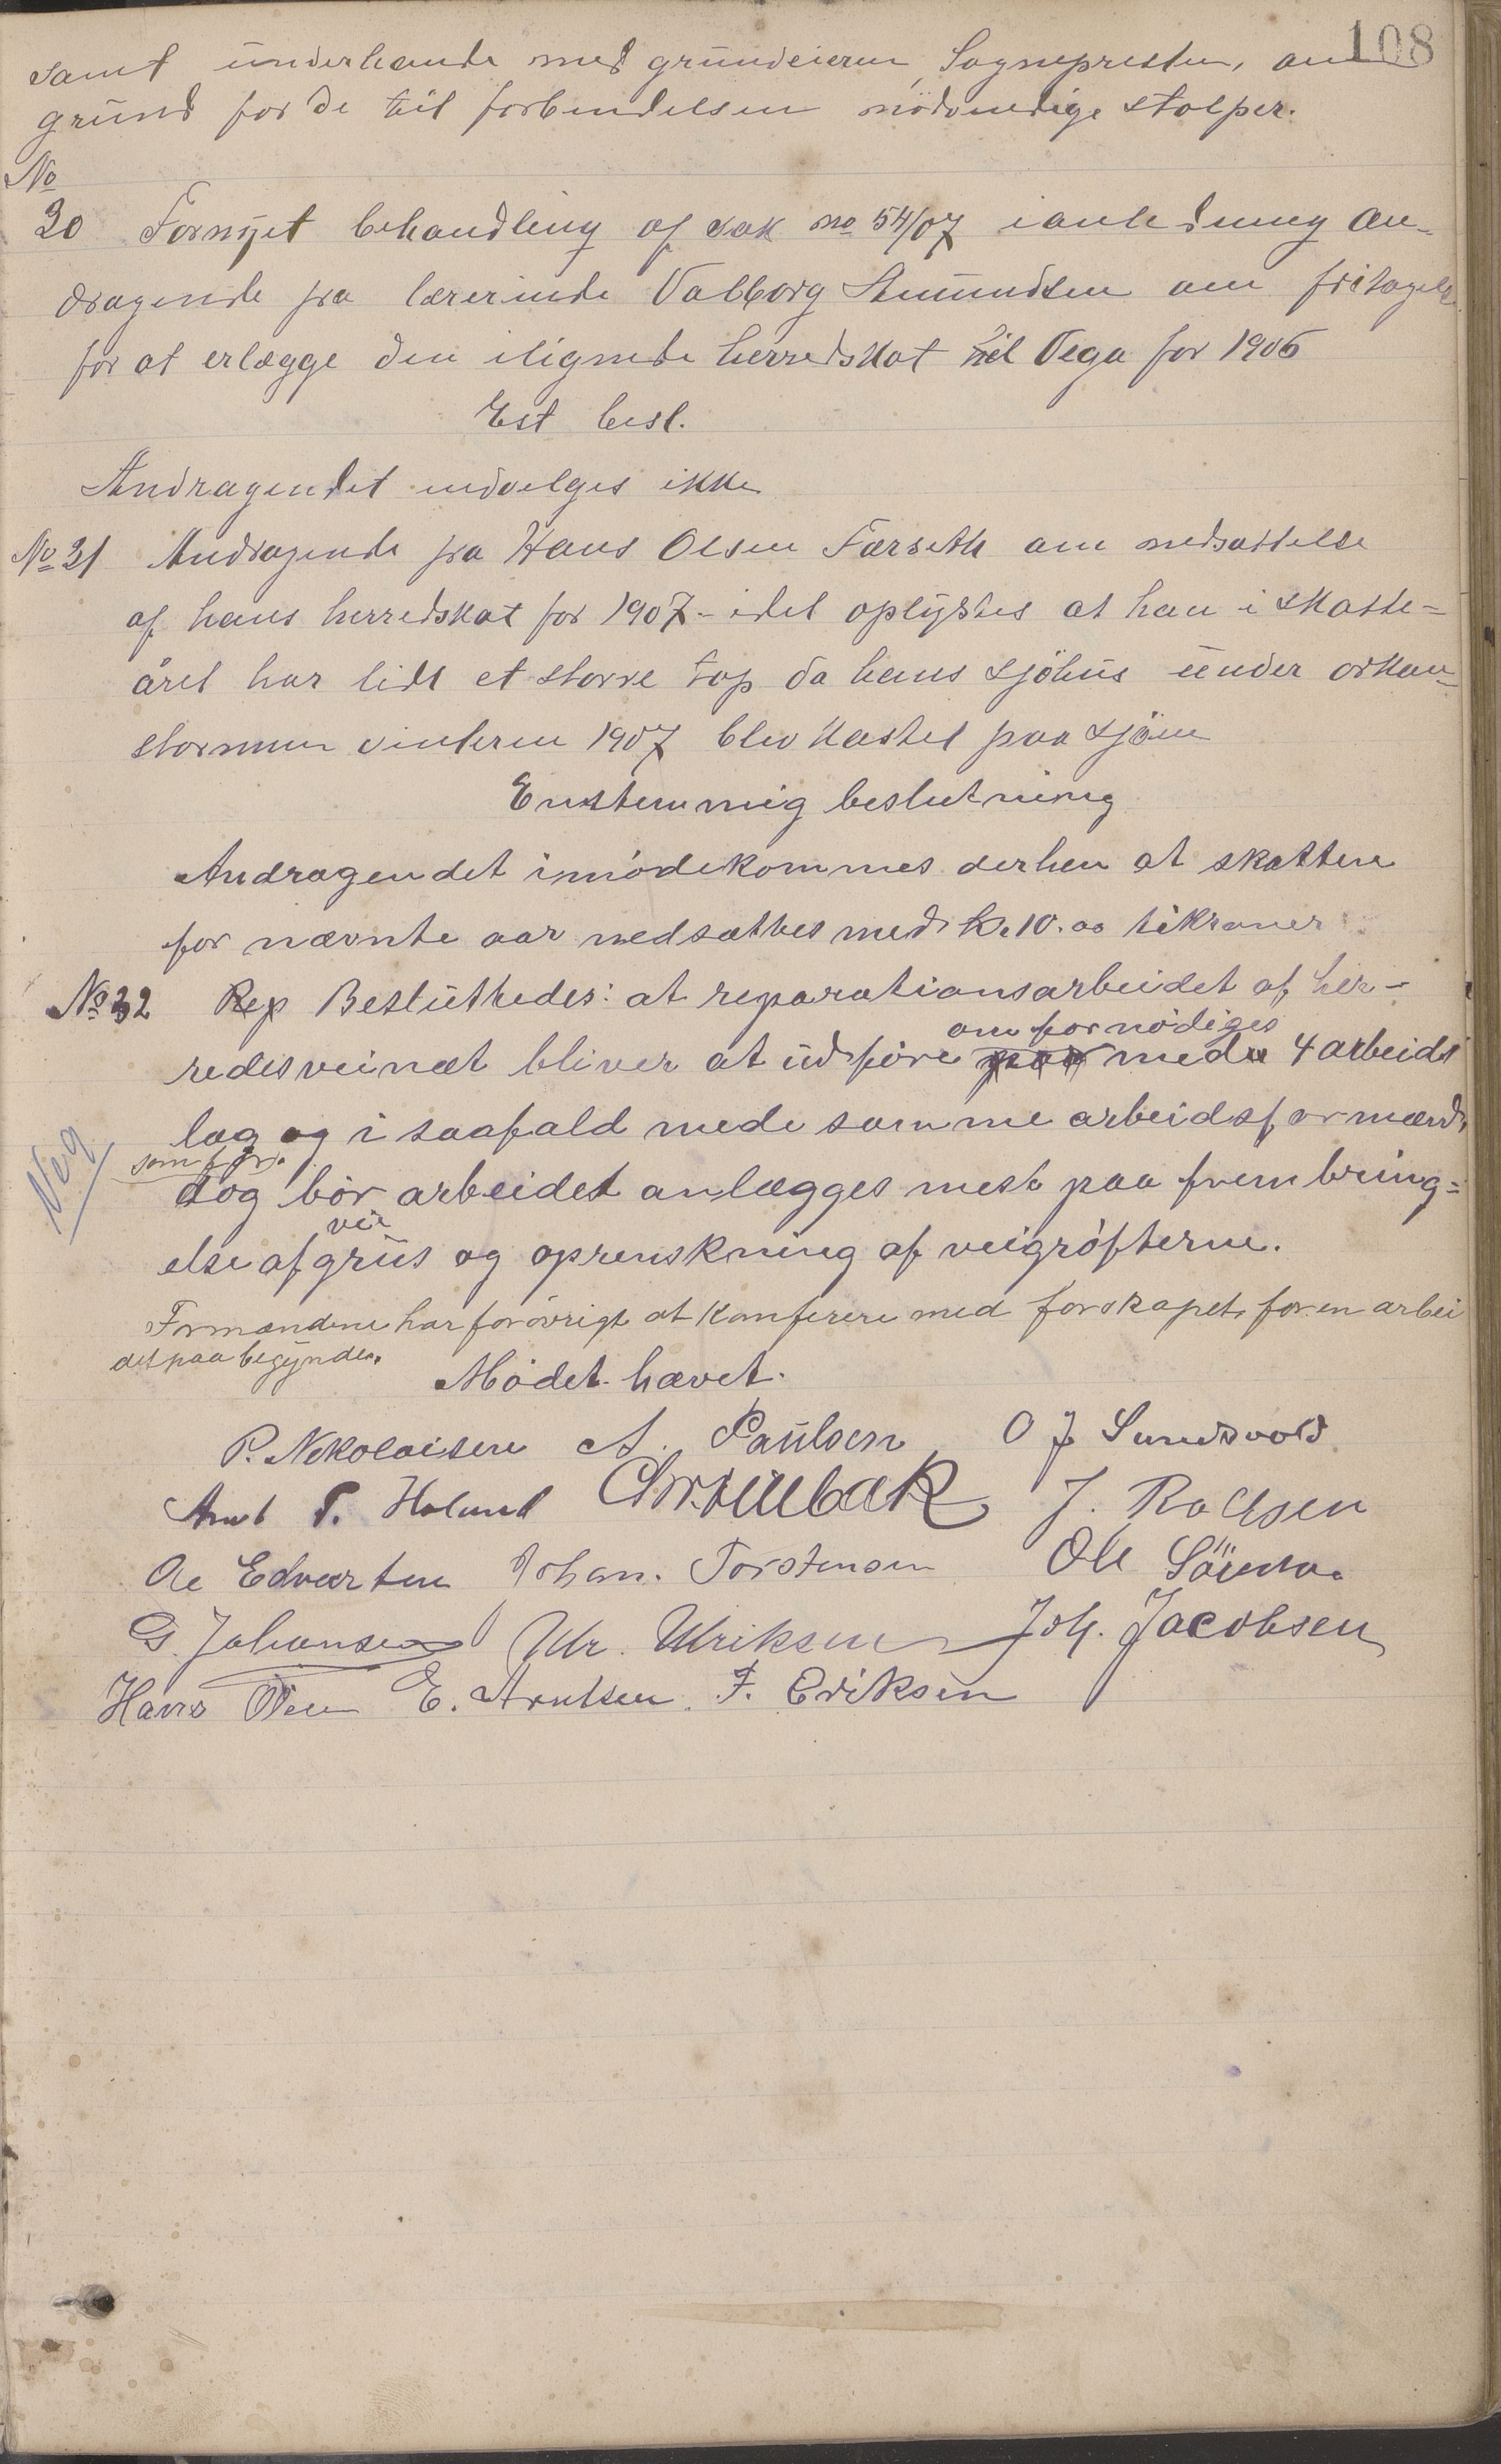 108
samt underhandle med grundeieren, Sognepresten, om
grund for de til forbindelsen nödvendige stolper.
No
30 Fornyet behandling af sak no 54/07 i anledning an-
dragende fra lærerinde Valborg Amundsen om fritagelse
for at erlægge den ilignede herredskat til Vega for 1906
Est besl.
Andragendet indvilges ikke
No 31 Andragende fra Hans Olsen Færseth om nedsættelse
af hans herredskat for 1907 - idet oplystes at han i skatte-
året har lidt et större tap da hans sjöhus under orkan-
stormen vinteren 1907 blev kastet paa sjöen
Enstemmig beslutning
Andragendet imødekommes derhen at skatten
for nævnte aar nedsættes med kr. 10.00 tikroner
No 32 Rep Besluttedes: at reparationsarbeidet af her-
om fornödiges
redsveinæt bliver at udföre paa med 4 arbeids
lag og i saafald med samme arbeidsformænd,
som för.
Veg
dog bör arbeidet anlægges mest paa frembring-
vei
else af grus og oprenskning af veigröfterne.
Formændene har forövrigt at konferere med forskapet, förend arbei
det paabegyndes.
Mødet hævet.
P. Nikolaisen A. Paulsen O J Sundsvold
Arnt P. Holand J. Roksen
Ole Edvartsen Johan. Torstensen Ole
G. Johansen Ulr. Ulriksen Joh. Jacobsen
Hans Olsen E. Arntsen. F. Eriksen